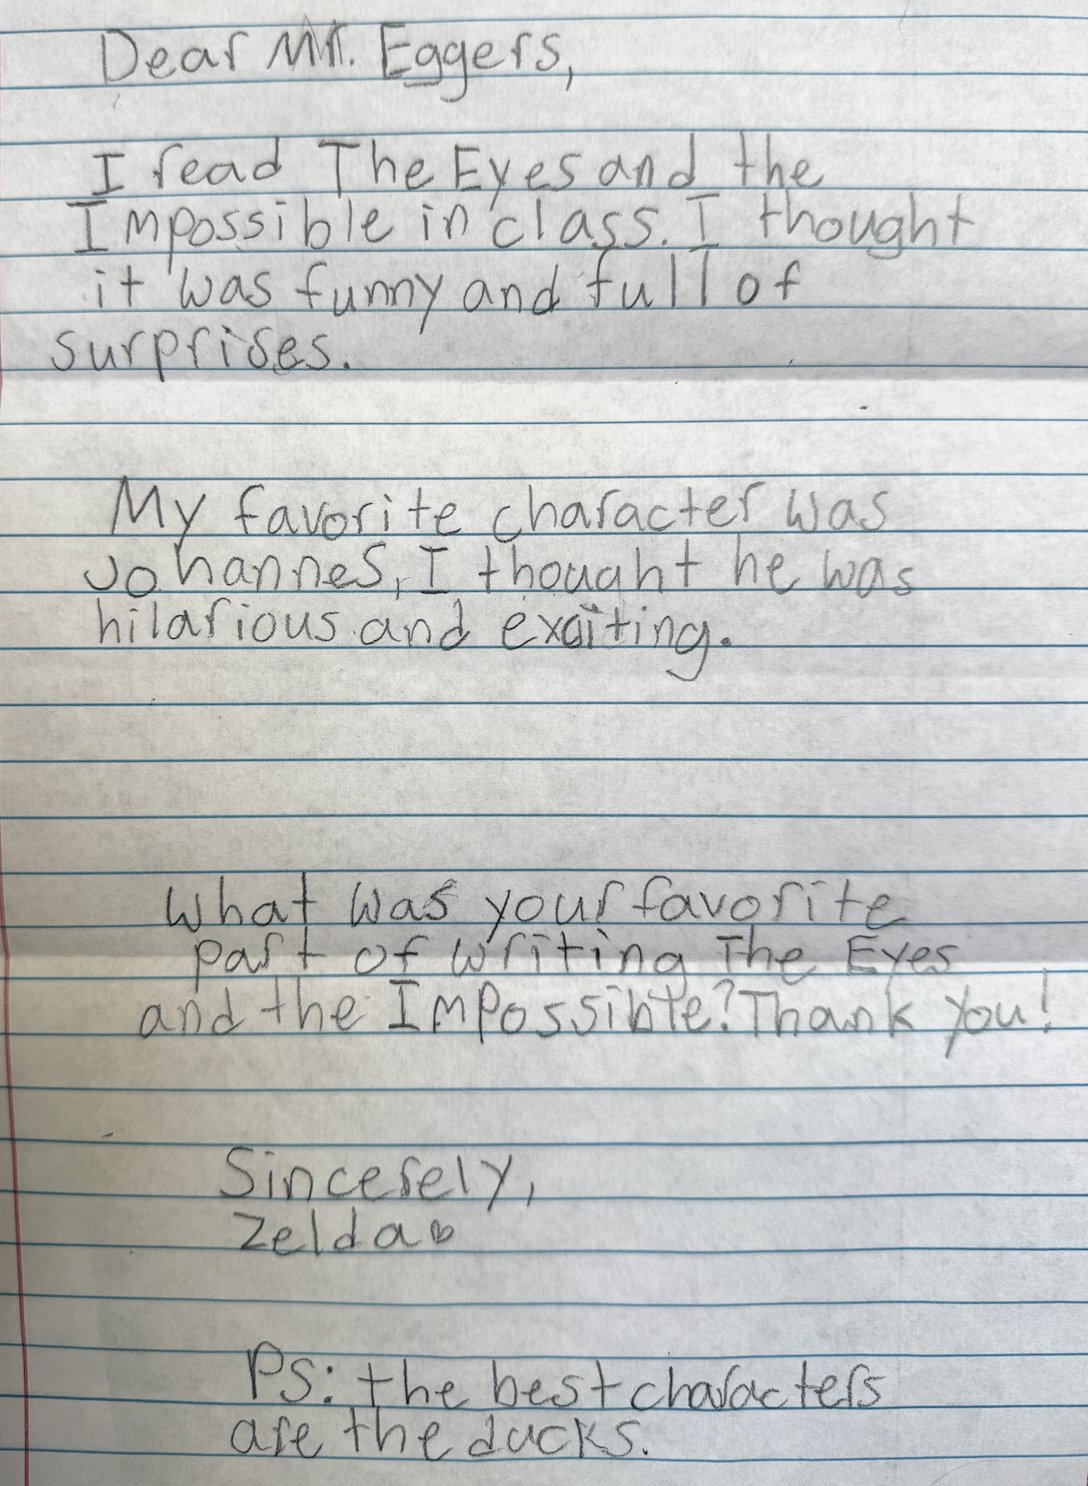 Dear Mr. Eggers,
I read The Eyes and the
Impossible in class. I thought
it was funny and full of
surprises.
My favorite character was
Johannes, I thought he was
hilarious and exciting.
What was your favorite
part of writing The Eyes
and the Impossible? Thank you!
Sincerely,
Zelda♡
PS: the best characters
are the ducks.